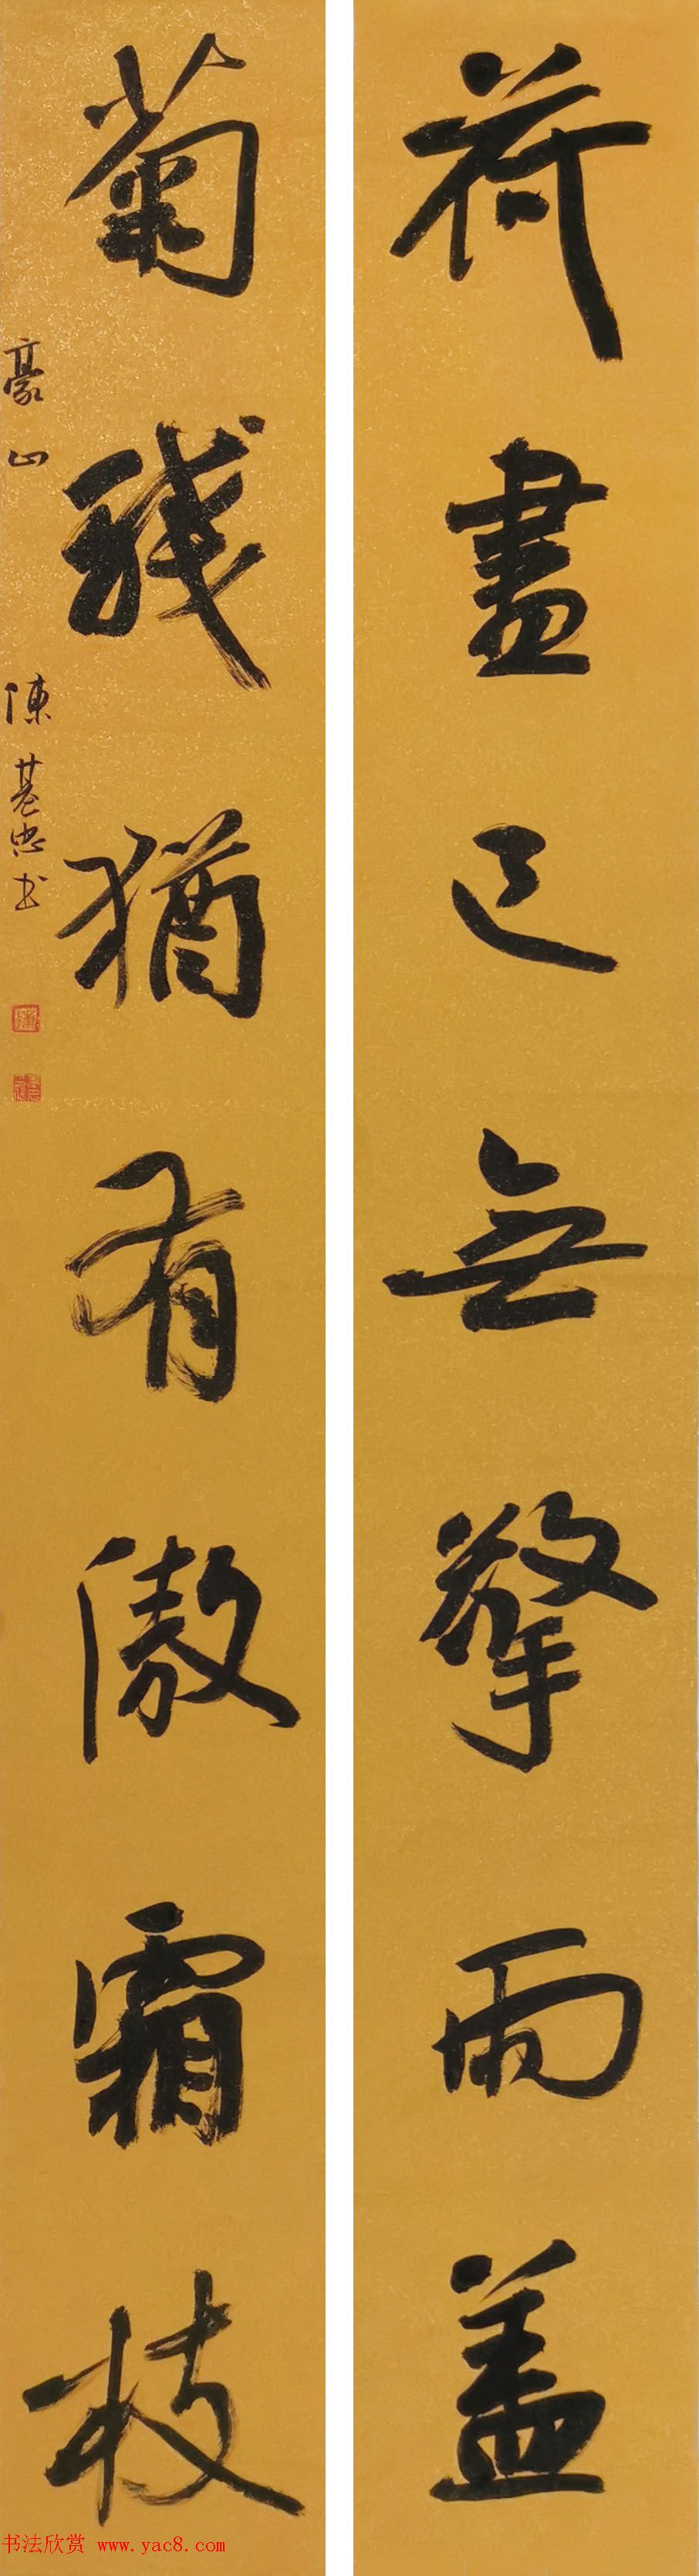 荷盡已無擎雨蓋
菊殘猶有傲霜枝
豪山 陳基忠书
书法欣赏 www.yac8.com